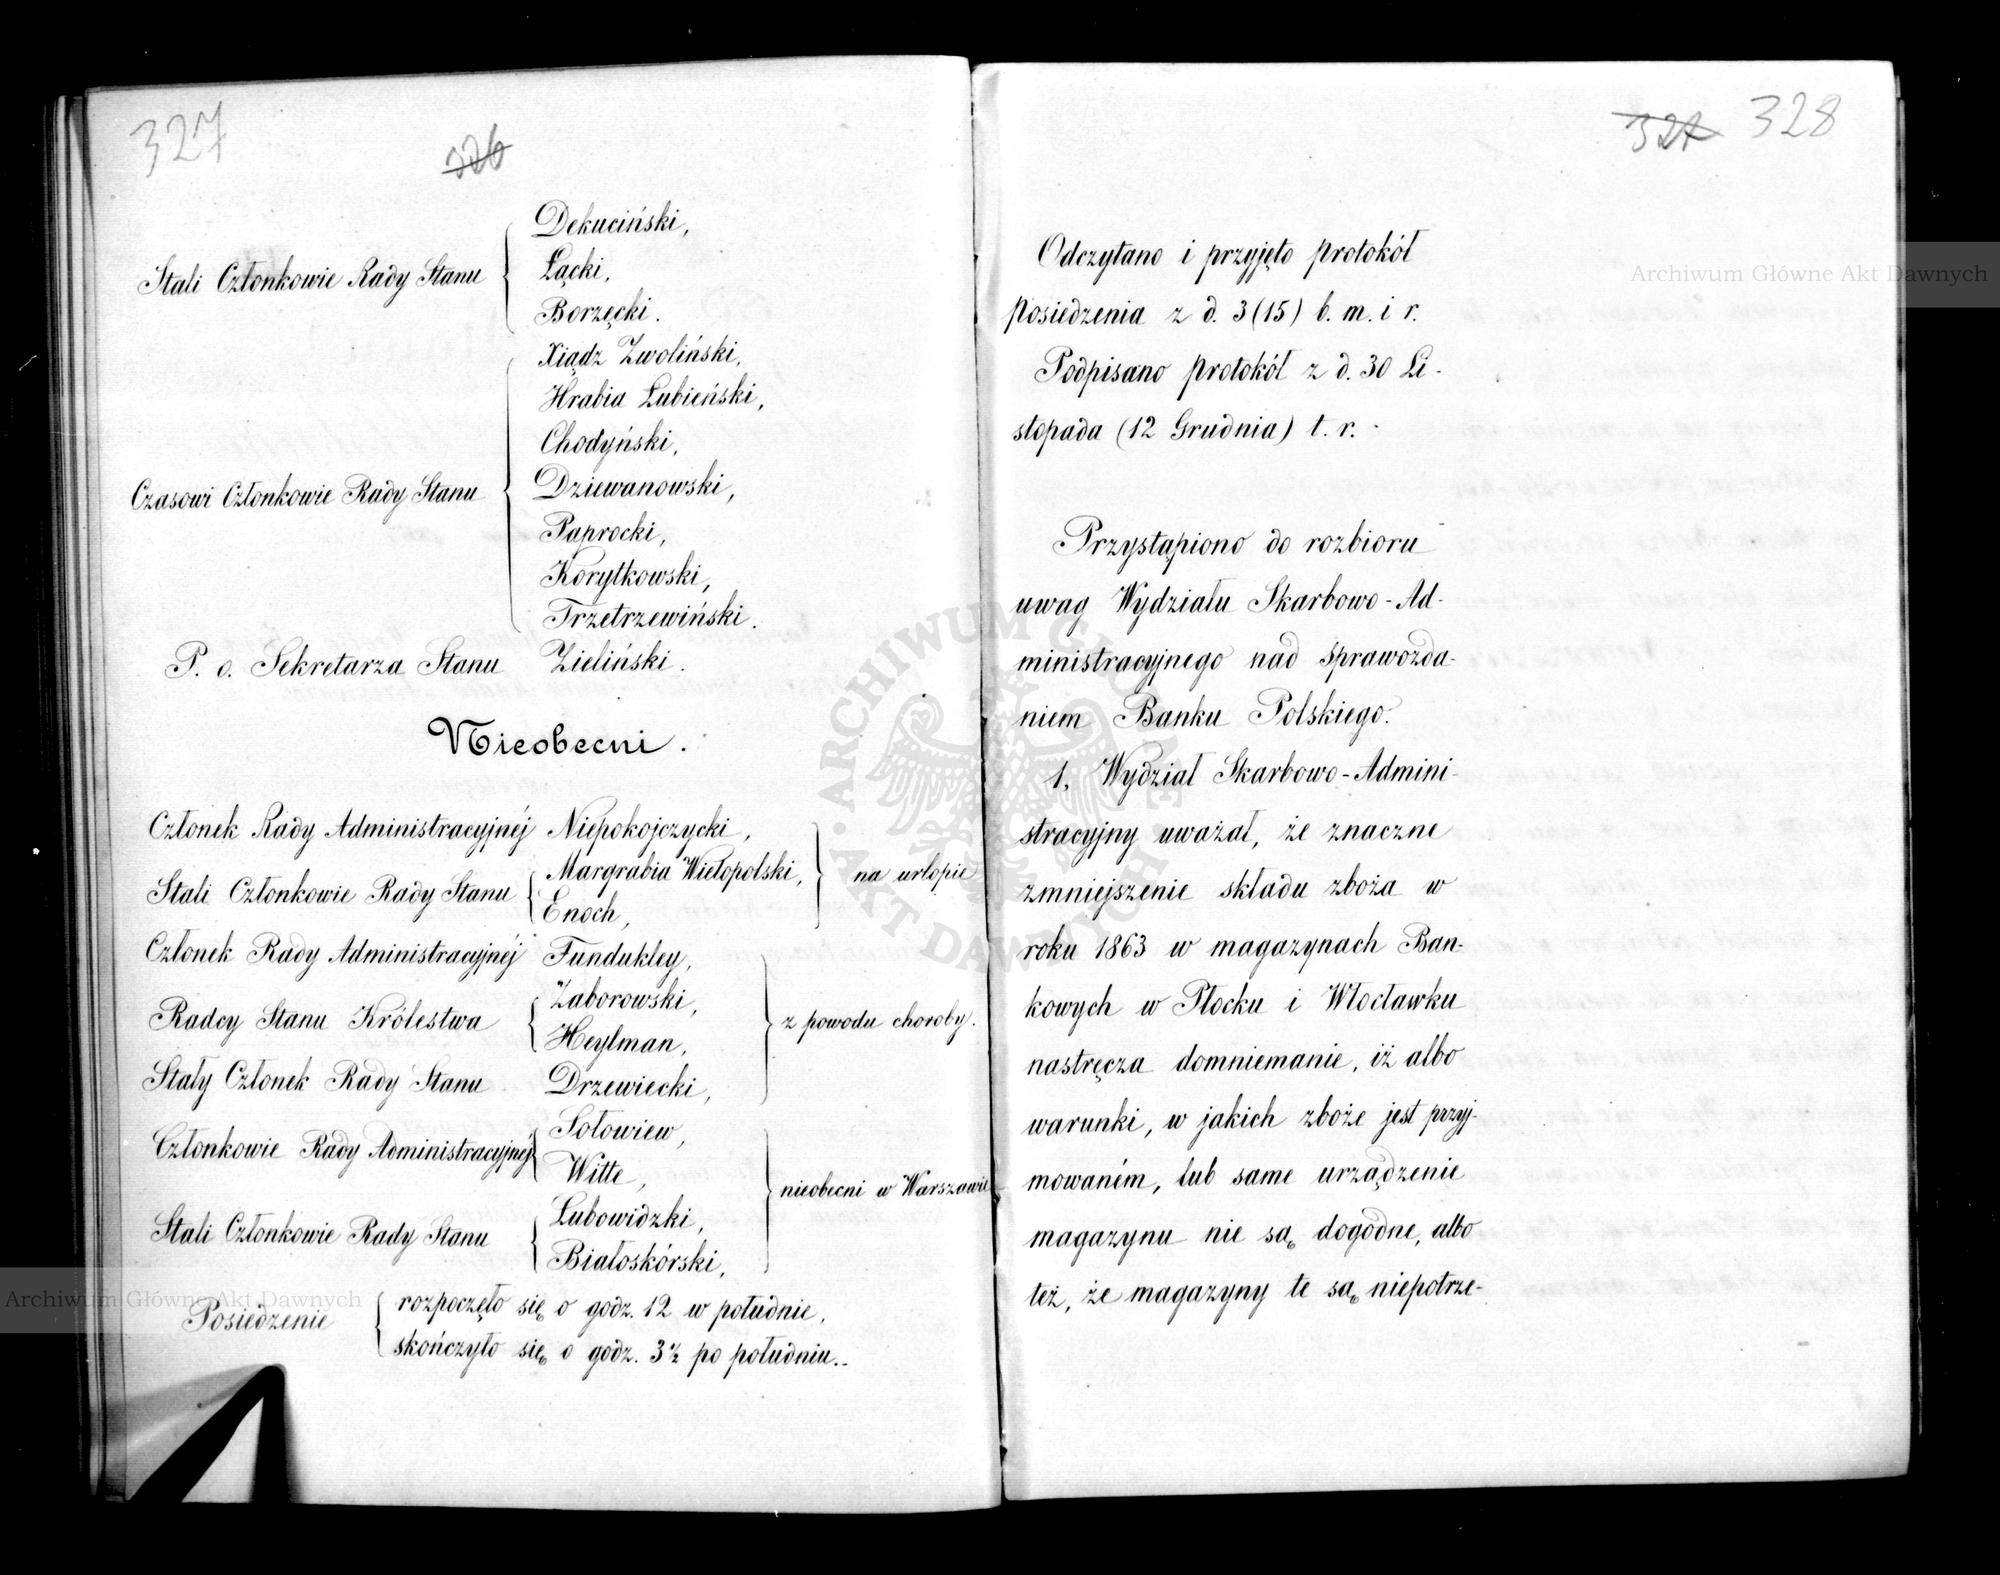 327
326
Stali Członkowie Rady Stanu
Dekuciński,
Łącki,
Borzęcki.
Czasowi Członkowie Rady Stanu
Xiądz Zwoliński,
Hrabia Łubieński,
Chodyński,
Dziewanowski,
Paprocki,
Korytkowski,
Trzetrzewiński.
P. o. Sekretarza Stanu Zieliński.
Nieobecni.
Członek Rady Administracyjnéj Niepokojczycki,
Stali Członkowie Rady Stanu
Margrabia Wielopolski,
Enoch,
na urlopie
Członek Rady Administracyjnéj Fundukley,
Radcy Stanu Królestwa
Zaborowski,
Heylman,
Stały Członek Rady Stanu Drzewiecki,
z powodu choroby.
Członkowie Rady Administracyjnéj
Sołowiew,
Witte,
Stali Członkowie Rady Stanu
Łubowidzki,
Białoskórski,
nieobecni w Warszawie
Posiedzenie
rozpoczęło się o godz. 12 w południe,
skończyło się o godz. 3½ po południu.
327 328
Odczytano i przyjęto protokół
posiedzenia z d. 3 (15) b. m. i r.
Podpisano protokół z d. 30 Li-
stopada (12 Grudnia) t. r. -
Przystąpiono do rozbioru
uwag Wydziału Skarbowo-Ad-
ministracyjnego nad sprawozda-
niem Banku Polskiego.
1, Wydział Skarbowo-Admini-
stracyjny uważał, że znaczne
zmniejszenie składu zboża w
roku 1863 w magazynach Ban-
kowych w Płocku i Włocławku
nastręcza domniemanie, iż albo
warunki, w jakich zboże jest przyj-
mowaném, lub same urządzenie
magazynu nie są dogodne, albo
też, że magazyny te są niepotrze-
Archiwum Główne Akt Dawnych
Archiwum Główne Akt Dawnych
ARCHIWUM GŁÓWNE AKT DAWNYCH